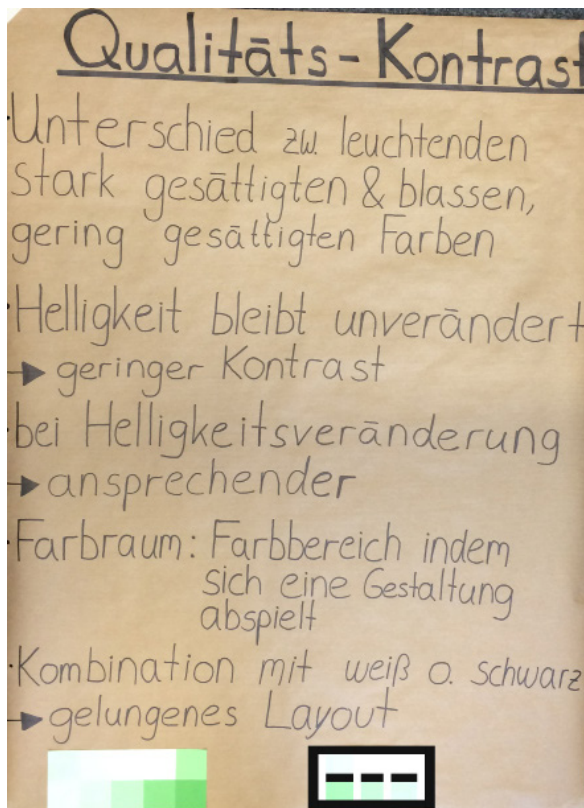 Qualitäts-Kontrast
· Unterschied zw. leuchtenden
stark gesättigten & blassen,
gering gesättigten Farben
· Helligkeit bleibt unverändert
→ geringer Kontrast
· bei Helligkeitsveränderung
→ ansprechender
· Farbraum: Farbbereich indem
sich eine Gestaltung
abspielt
· Kombination mit weiß o. schwarz
→ gelungenes Layout